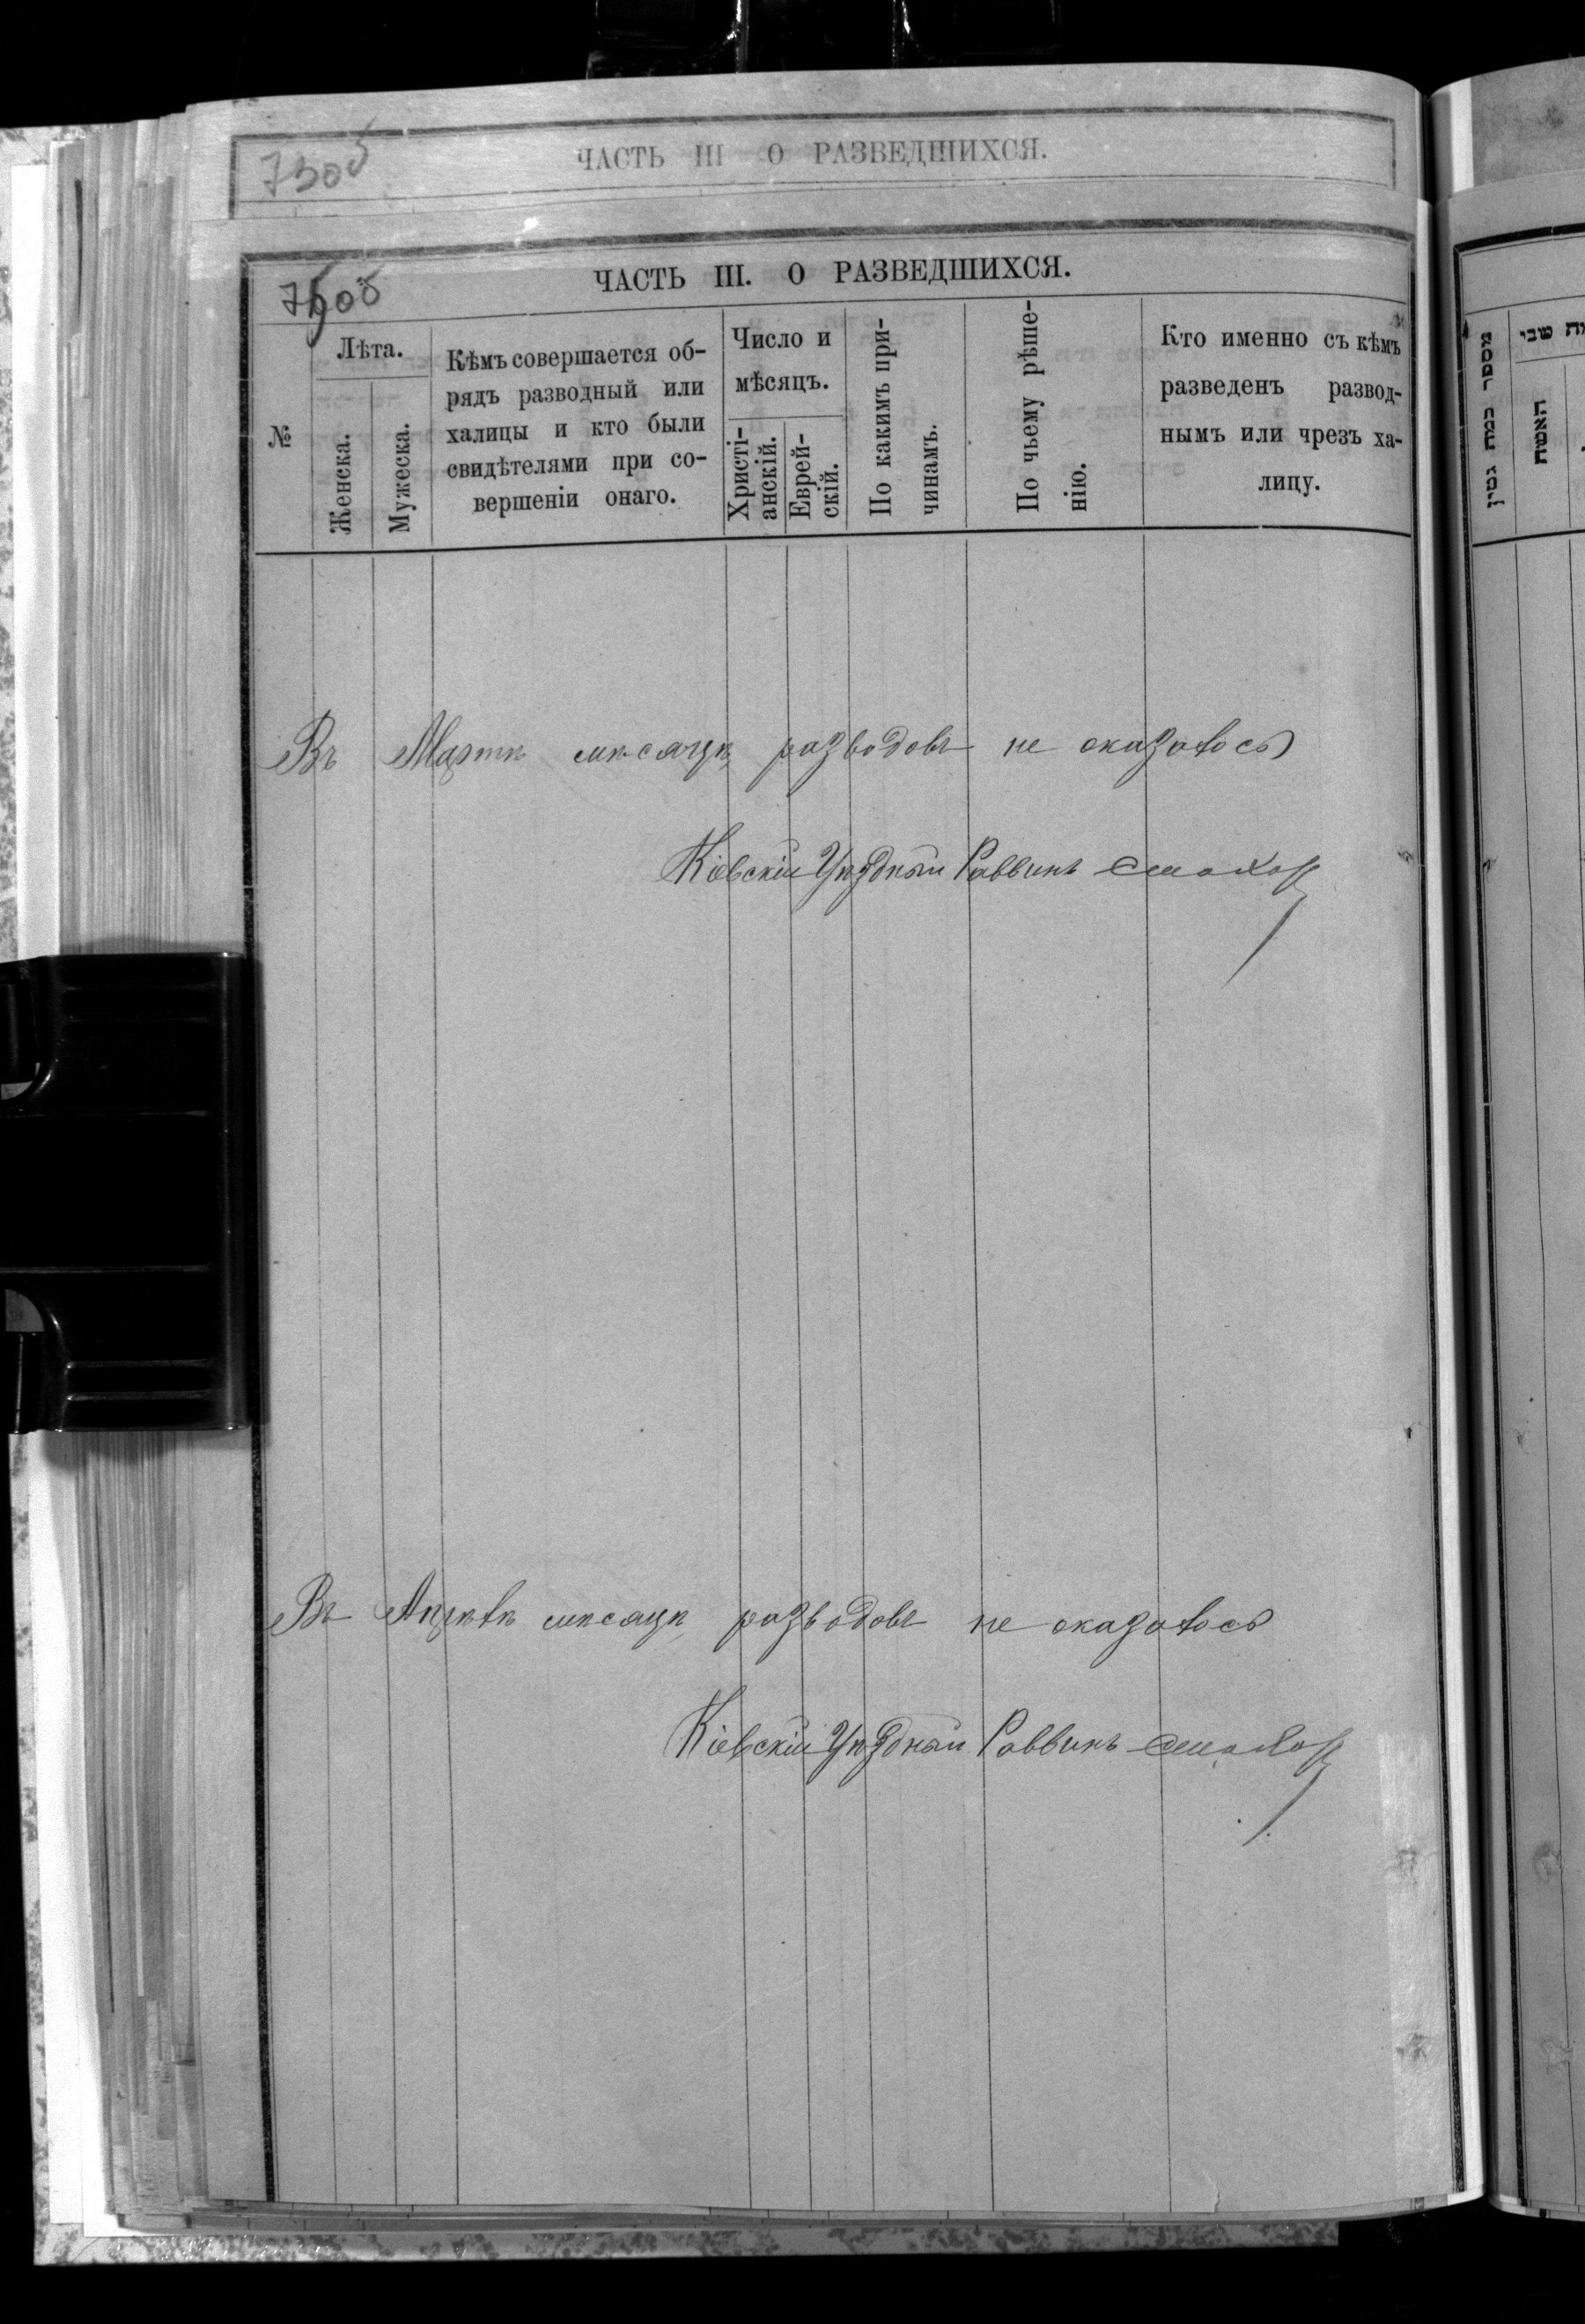 ЧАСТЬ III О РАЗВЕДШИХСЯ.
ЧАСТЬ III. О РАЗВЕДШИХСЯ.
№
Лѣта.
Женска.
Мужеска.
Кѣмъ совершается об-
рядъ разводный или
халицы и кто были
свидѣтелями при со-
вершеніи онаго.
Число и
мѣсяцъ.
Христі-
анскій.
Еврей-
скій.
По какимъ при-
чинамъ.
По чьему рѣше-
нію.
Кто именно съ кѣмъ
разведенъ развод-
нымъ или чрезъ ха-
лицу.
Въ Мартѣ мѣсяцѣ разводовъ не оказалось
Кіевскій Уѣздный Раввинъ
Въ Апрѣлѣ мѣсяцѣ разводовъ не оказалось
Кіевскій Уѣздный Раввинъ
מספר כמה גטין
האשה
שבי